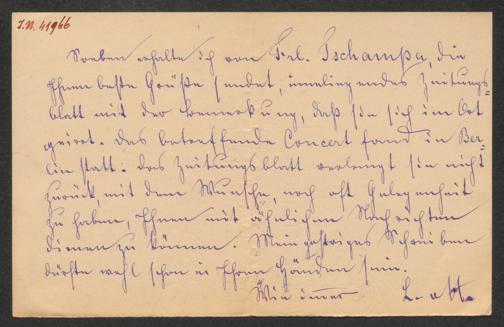 I.N. 41966
Soeben erhalte ich von Frl. Tschampa, die
Ihnen beste Grüße sendet, inneliegendes Zeitungs=
blatt mit der Bemerkung, daß sie sich im Ort
geirrt. Das betreffende Concert fand in Ber=
lin statt. Das Zeitungsblatt verlangt sie nicht
zurück, mit dem Wunsche, noch oft Gelegenheit
zu haben, Ihnen mit ähnlichen Nachrichten
dienen zu können. Mein gestriges Schreiben
dürfte wohl schon in Ihren Händen sein.
Wie immer